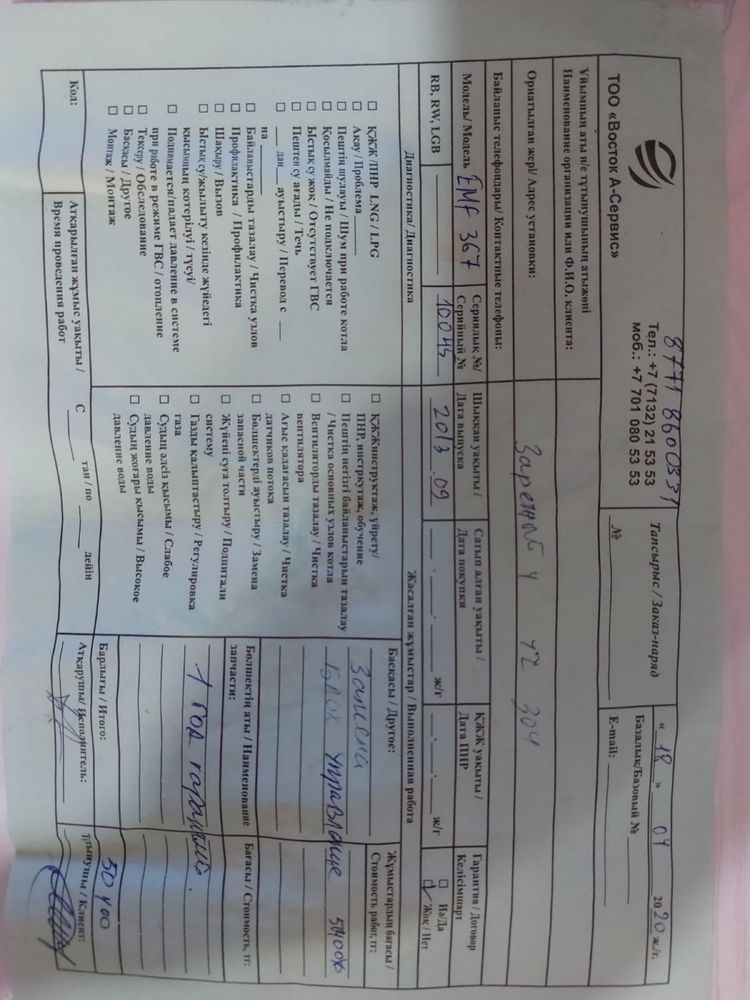 8771 8600331
ТОО «Восток А-Сервис»
Тел.: +7 (7132) 21 53 53
моб.: +7 701 080 53 53
Тапсырыс / Заказ-наряд
№
« 18 » 2020 ж./г.
Базалық/Базовый №
E-mail:
Ұйымның аты н/е тұтынушының атыжөні
Наименование организации или Ф.И.О. клиента:
Орнатылған жері/ Адрес установки:
Заречный 4 42 304
Байланыс телефондары/ Контактные телефоны:
Модель/ Модель
EMF 367
RB, RW, LGB
Сериялық №/
Серийный №
10045
Шыққан уақыты /
Дата выпуска
2013 .09
Сатып алған уақыты /
Дата покупки
ж/г
ҚЖЖ уақыты /
Дата ПНР
ж/г
Гарантия / Договор
Келісімшарт
☐ Иә/Да
☑ Жоқ / Нет
Диагностика/ Диагностика
☐ ҚЖЖ /ПНР LNG / LPG
☐ Ақау / Проблема
☐ Пештің шулауы / Шум при работе котла
☐ Қосылмайды / Не подключается
☐ Ыстық су жоқ / Отсутствует ГВС
☐ Пештен су ағады / Течь
☐ ___ дан ___ ауыстыру / Перевод с ___
на
☐ Байланыстарды тазалау / Чистка узлов
☐ Профилактика / Профилактика
☐ Шақыру / Вызов
☐ Ыстық су/жылыту кезінде жүйедегі
қысымның көтерілуі / түсуі/
☐ Поднимается/падает давление в системе
при работе в режиме ГВС / отопление
☐ Тексеру / Обследование
☐ Басқасы / Другое
☐ Монтаж / Монтаж
Жасалған жұмыстар / Выполненная работа
☐ ҚЖЖинструктаж, үйрету/
ПНР, инструктаж, обучение
☐ Пештің негізгі байланыстарын тазалау
/ Чистка основных узлов котла
☐ Вентиляторды тазалау / Чистка
вентилятора
☐ Ағыс қадағасын тазалау / Чистка
датчиков потока
☐ Бөлшектерді ауыстыру / Замена
запасной части
☐ Жүйені суға толтыру / Подпитали
систему
☐ Газды қалыптастыру / Регулировка
газа
☐ Судың әлсіз қысымы / Слабое
давление воды
☐ Судың жоғары қысымы / Высокое
давление воды
Басқасы / Другое:
Жұмыстардың бағасы /
Стоимость работ, тг:
Замена
Блок управление
Бөлшектің аты / Наименование
запчасти:
Бағасы / Стоимость, тг:
1 год гарантия.
Барлығы / Итого:
50400
Код:
Атқарылған жұмыс уақыты /
Время проведения работ
С ___ тан / по ___ дейін
Атқарушы/ Исполнитель:
Тұтынушы / Клиент: